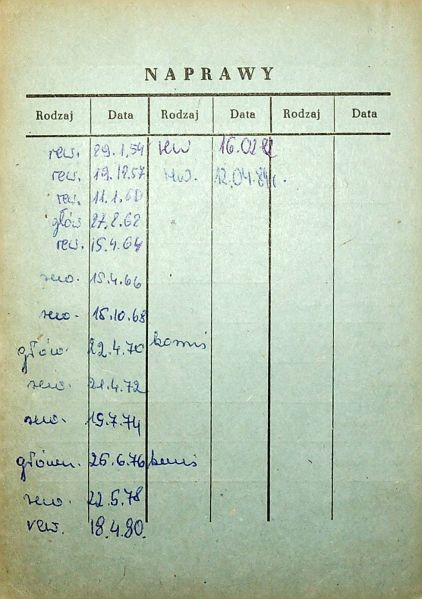 NAPRAWY
Rodzaj Data Rodzaj Data Rodzaj Data
rew. 29.1.54 rew 16.02.82
rew. 19.12.57 rew. 12.04.84r.
rew. 11.1.60
głów 27.2.62
rew. 15.4.64
rew. 15.4.66
rew. 15.10.68
główn. 22.4.70
rew. 21.4.72
rew. 19.7.74
główn. 25.6.76
rew. 22.5.78
rew. 18.4.80.